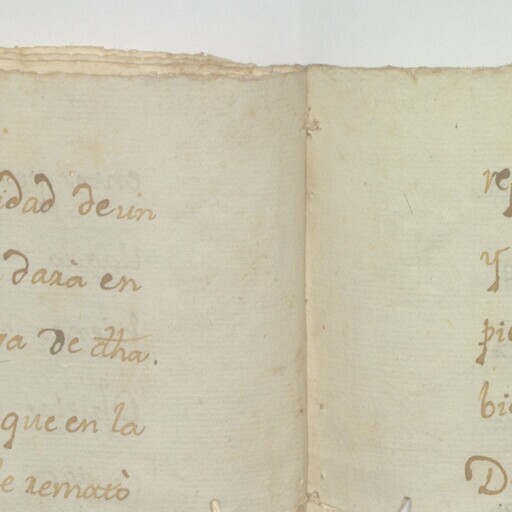 idad de un
darà en
ra de dha.
que en la
de remató
rep
Y
pie
bie
D